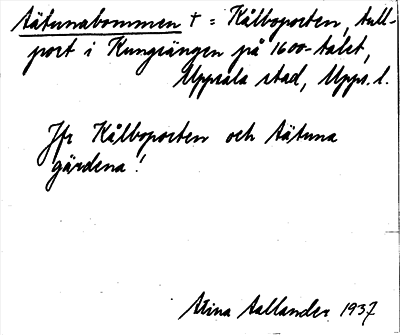 Tätunabommen † = Kålboporten, tull-
port i Kungsängen på 1600-talet,
Uppsala stad, Upps. l.
Jfr Kålboporten och Tätuna
gärdena!
Stina Aallander 1937